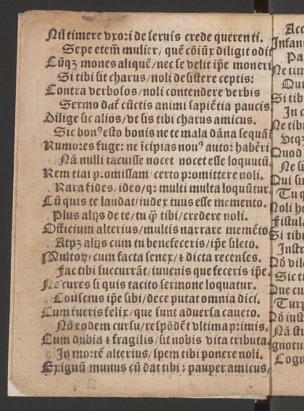 Nil timere vxori de seruis crede querenti.
Sepe etem̄ mulier/ quē cōiūx diligit odit
Cūqȝ mones aliquē/ nec se velit ip̄e moneri
Si tibi sit charus/ noli desistere ceptis:
Contra verbosos/ noli contendere verbis
Sermo dat̄ cūctis animi sapiētia paucis
Dilige sic alios/ vt sis tibi charus amicus.
Sic bonꝰ esto bonis ne te mala dāna sequāt̄
Rumores fuge: ne īcipias nouꝰ autor haberi
Nā nulli tacuisse nocet nocet esse loquutū.
Rem tiai p̄omissam/ certo promittere noli.
Rara fides/ ideo/qꝛ multi multa loquūtur.
Cū quis te laudat/ iudex tuus esse memento.
Plus alijs de te/ tu q̄ tibi/ credere noli.
Officium alterius/ multis narrare memēto.
Atqȝ alijs cum tu benefeceris/ ip̄e sileto.
Multoꝝ cum facta senex/ ⁊ dicta recenses.
Fac tibi succurrāt/ iuuenis que feceris ip̄e.
Ne cures si quis tacito sermone loquatur.
Conscius ip̄e sibi/ dece putat omnia dici.
Cum fueris felix/ que sunt aduersa caueto.
Nō eodem cursu/ respōdēt vltima primis.
Cum dubia ⁊ fragilis/ sit nobis vita tributa.
In mortē alterius/ spem tibi ponere noli.
Exiguū munus cū dat tibi: pauper amicus/